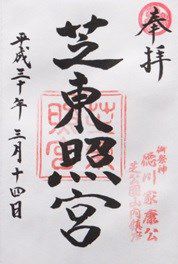 奉拝
芝東照宮
御祭神
徳川家康公
芝公園山内鎮座
平成三十年 三月十四日